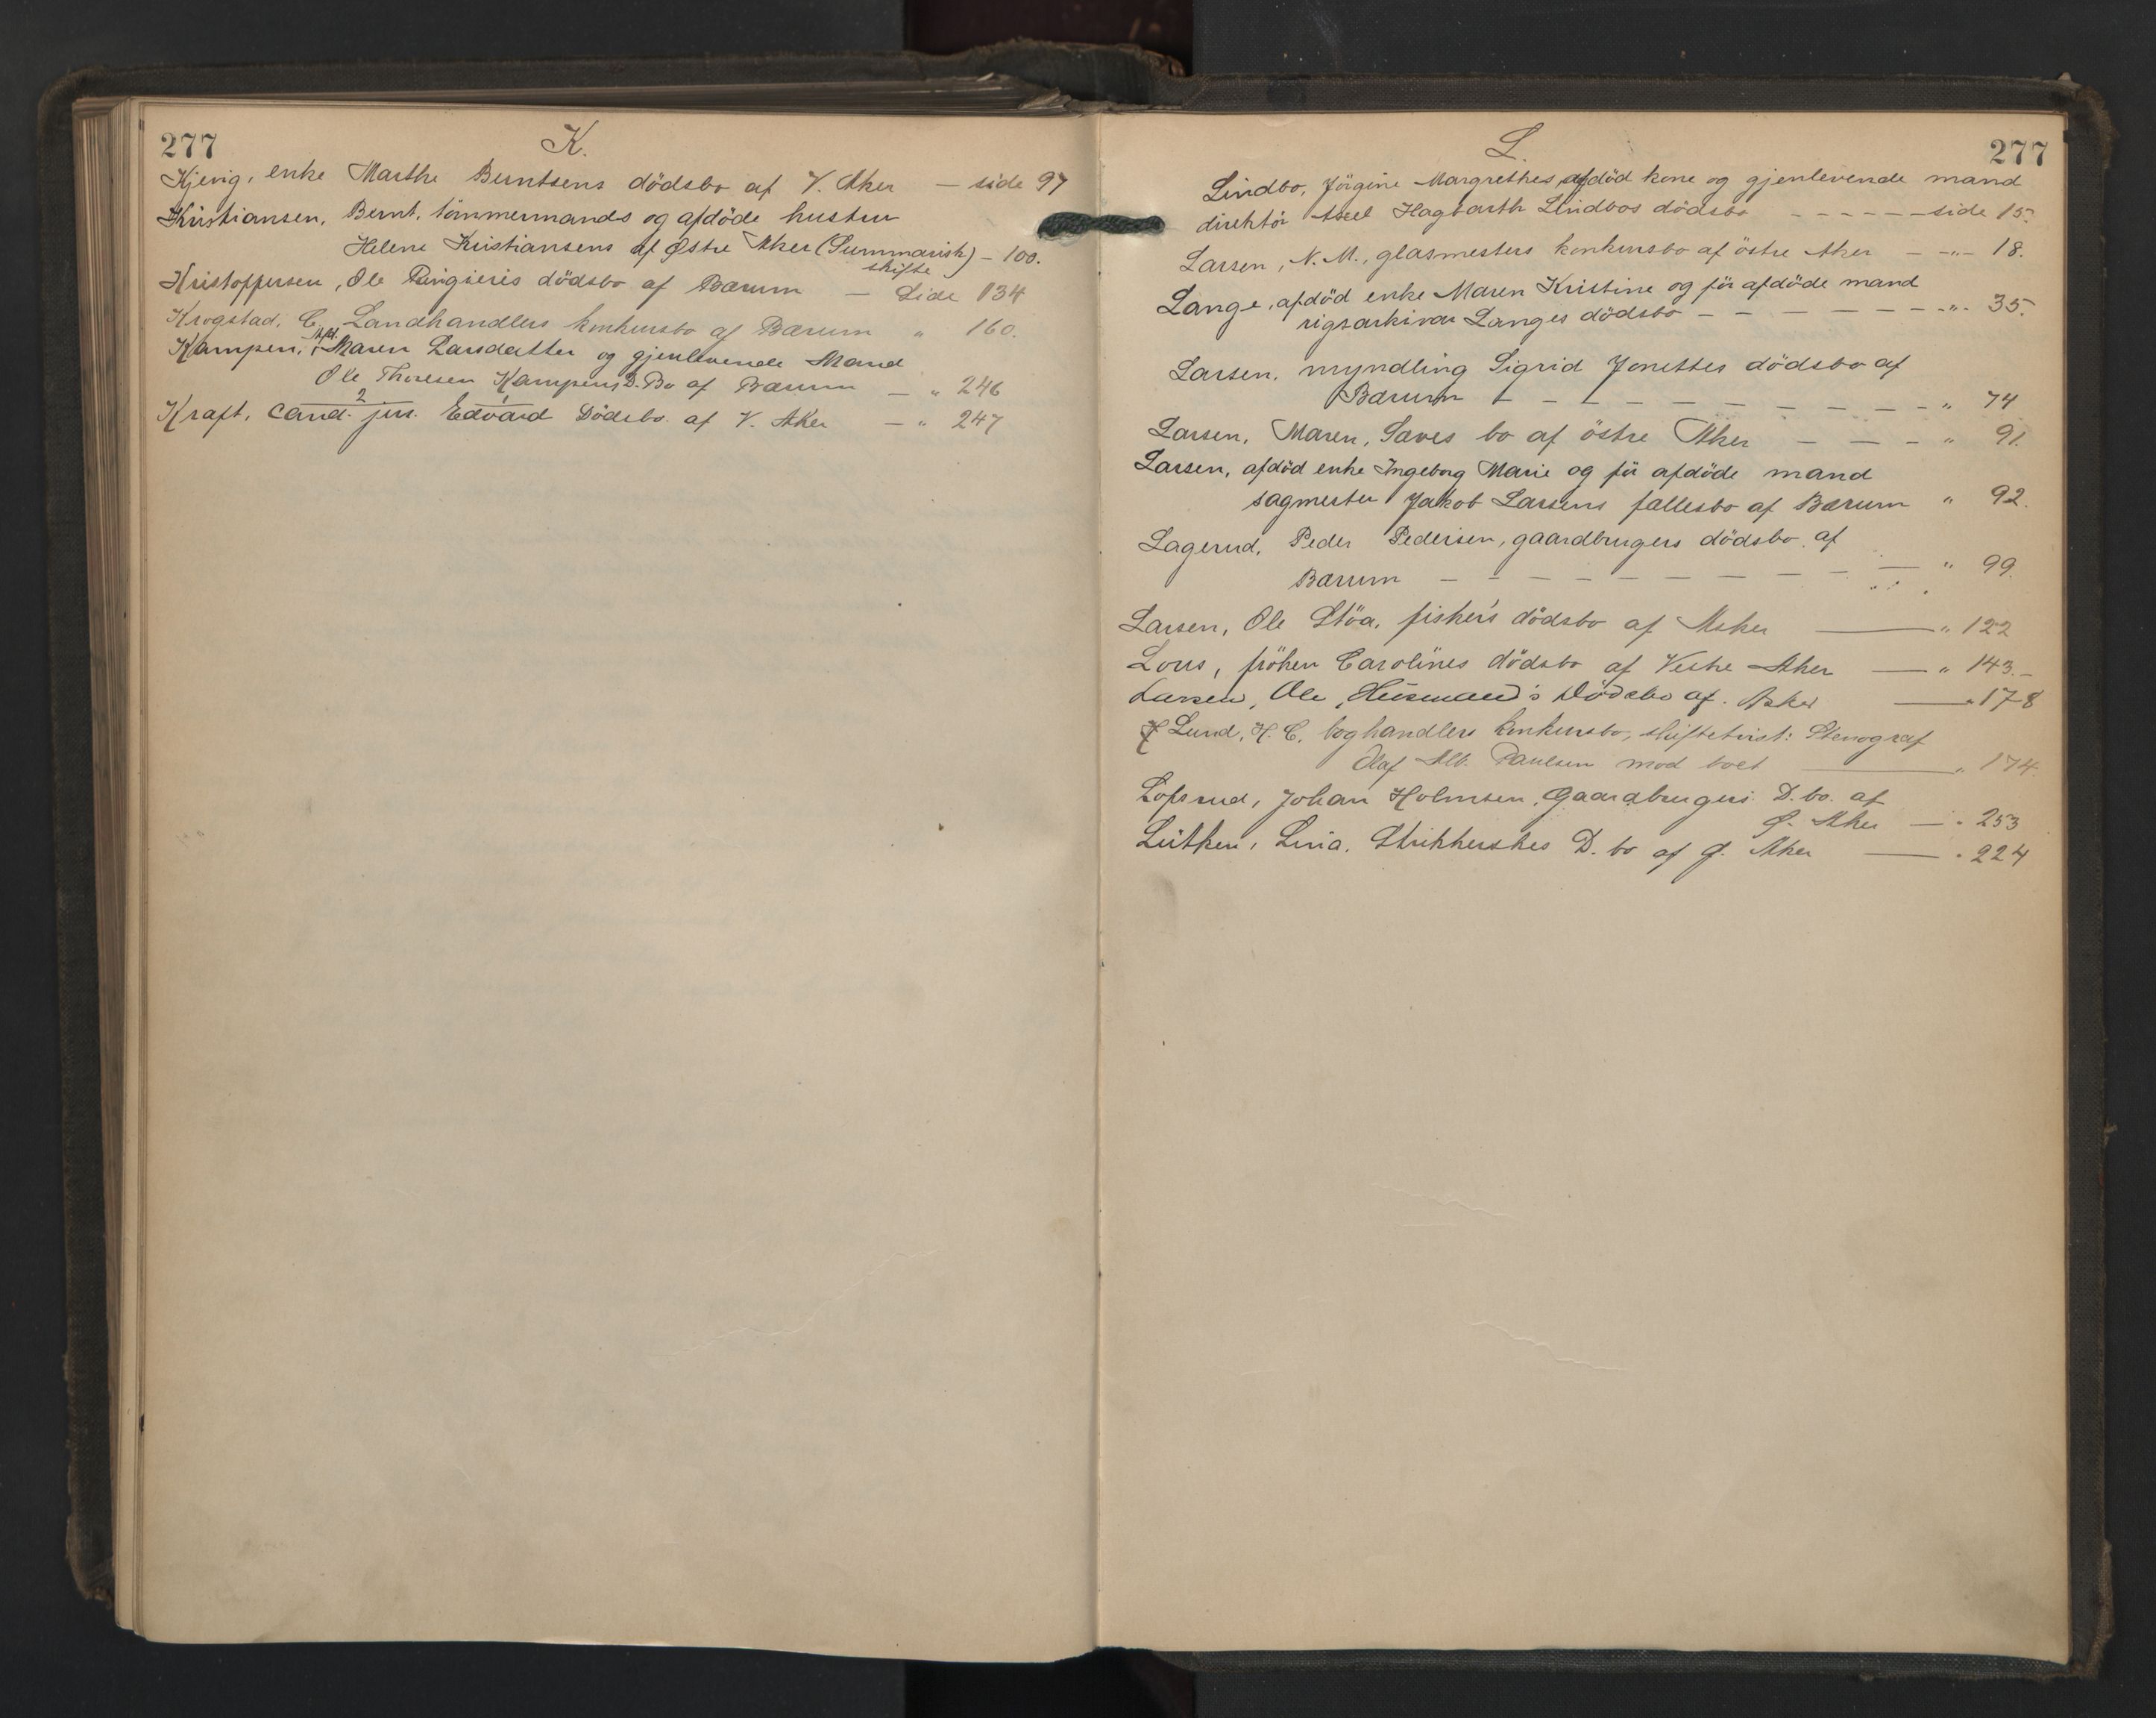 277
K.
Kjevig, enke Marthe Berntsens dödsbo af V. Aker — side 97
Kristiansen, Bernt, tömmermands og afdöde hustru
Helene Kristiansens af Østre Aker (Summarisk) – 100.
skifte
Kristoffersen, Ole Ringieris dödsbo af Bærum — Side 134
Krogstad, C. Landhandlers konkursbo af Bærum " 160.
Kampen, Maren Larsdatter og gjenlevende Mand
Ole Thoresen Kampens D. Bo af Bærum — " 246
2 1
Kraft, cand. jur. Edvard Dödsbo af V. Aker — " 247
L.
277
Lindbo, Jörgine Margrethes, afdöd kone og gjenlevende mand
direktör Axel Hagbarth Lindbos dödsbo - - - - - side 15.
Larsen, N. M., glasmesters konkursbo af östre Aker - -"- 18.
Lange, afdöd enke Maren Kristine og för afdöde mand
rigsarkivar Langes dödsbo - - - - - - - -"- 35.
Larsen, myndling Sigrid Jonettes dödsbo af
Bærum - - - - - - - - - - " 74
Larsen, Maren, Saves bo af östre Aker - - - " 91.
Larsen, afdöd enke Ingeborg Marie og för afdöde mand
sagmester Jakob Larsens fællesbo af Bærum " 92.
Lagerud, Peder Pedersen, gaardbrugers dödsbo af
Bærum - - - - - - - - - - — " 99.
Larsen, Ole Stöa, fisker's dödsbo af Asker — " 122
Lous, fröken Carolines dödsbo af Vestre Aker — " 143.–
Larsen, Ole, Husmand's Dödsbo af Asker — " 178
Lund, H. C. boghandlers konkursbo, skiftetvist: Stenograf
Olaf Alb. Paulsen mod boet — " 174.
Lofsrud, Johan Holmsen, Gaardbrugers D. bo. af
Ø. Aker — " 253
Lütken, Lina, Strikkerskes D. bo af Ø. Aker — " 224